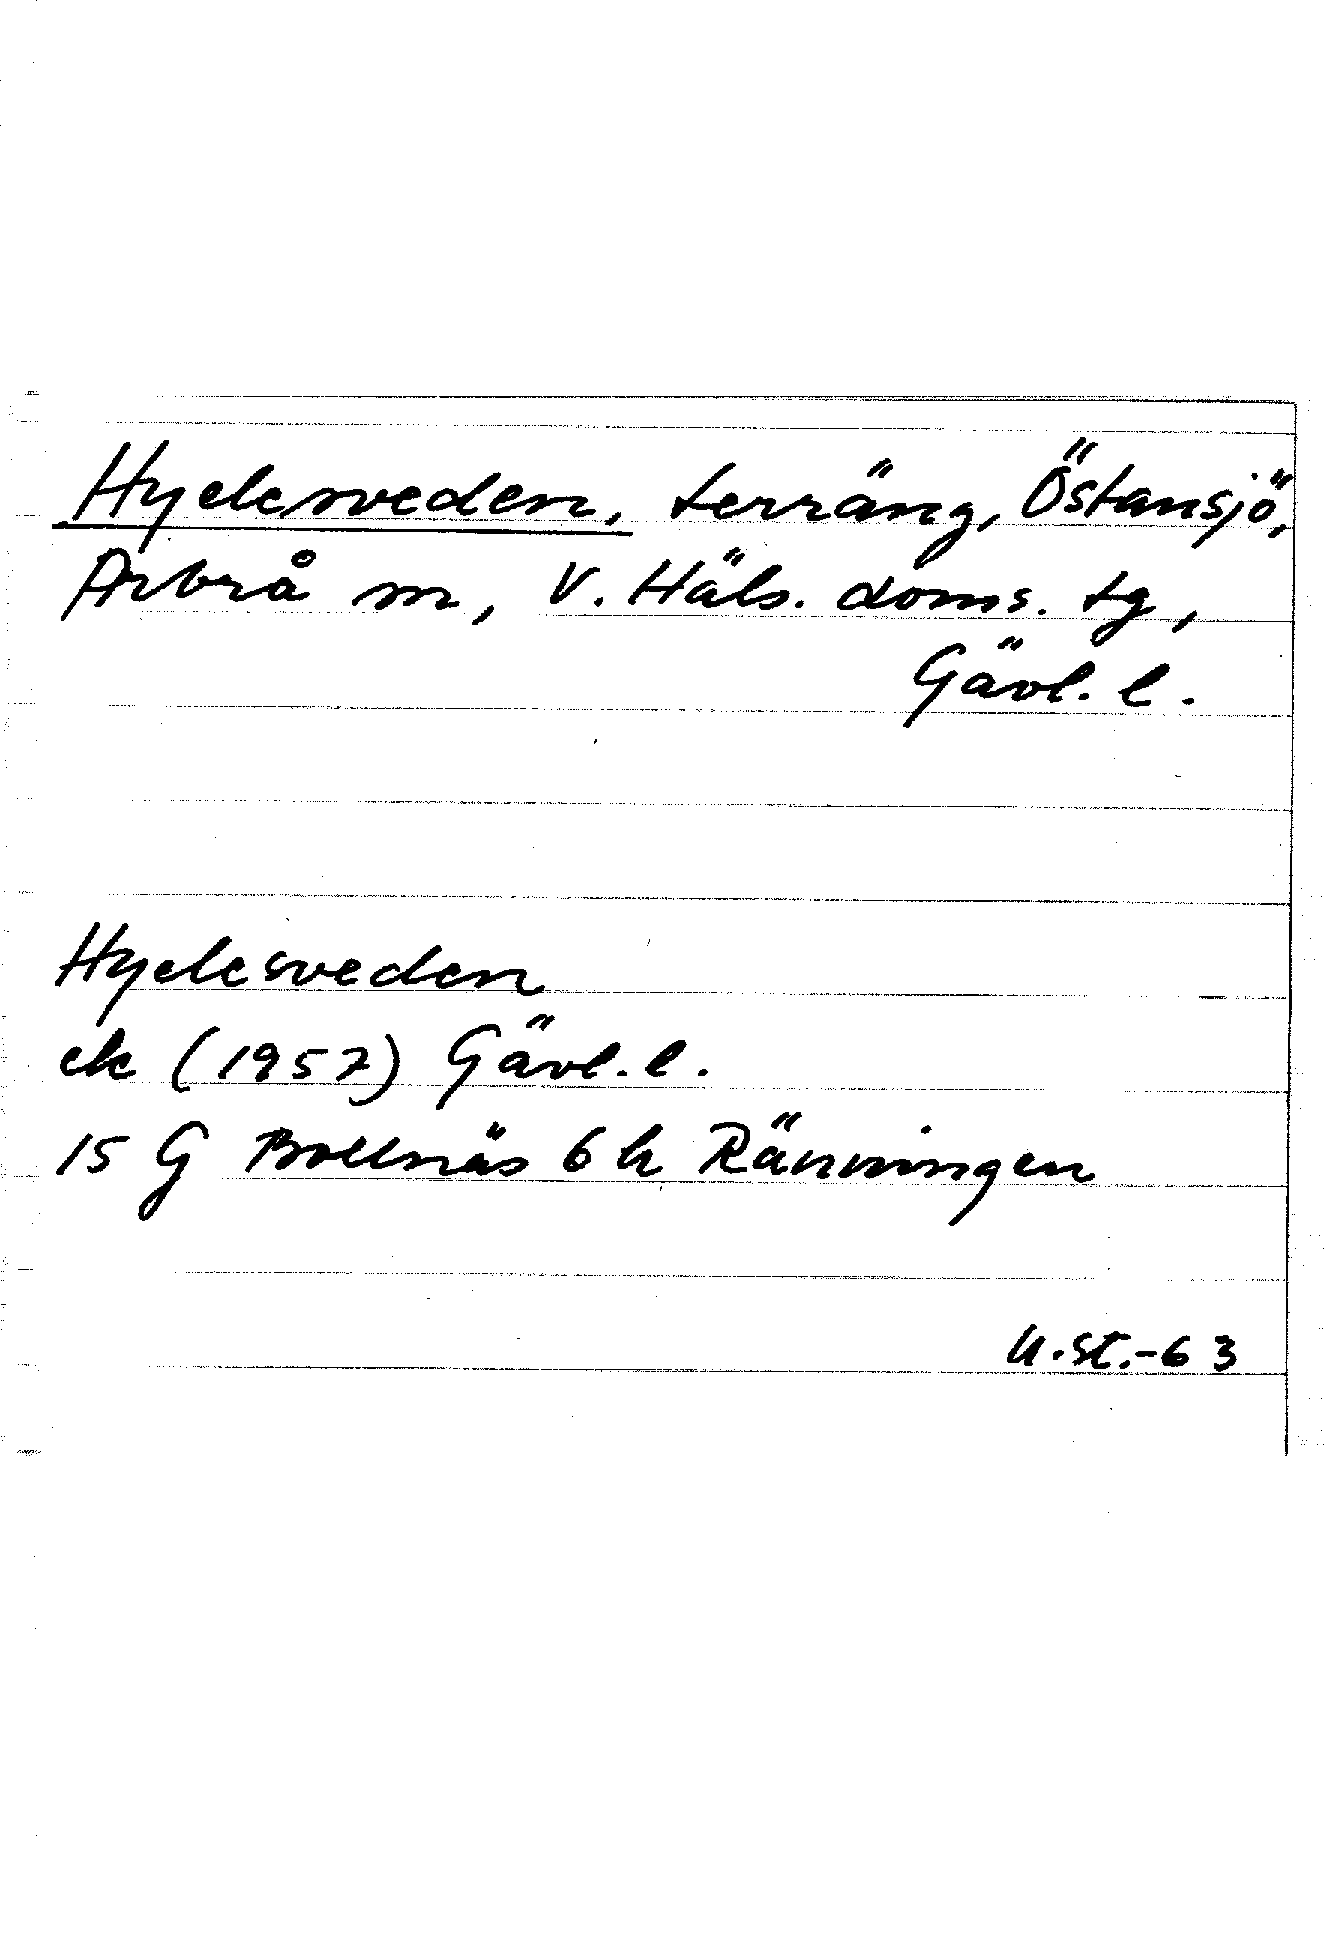 Hyelesveden, terräng, Östansjö,
Arbrå sn, V. Häls. doms. tg,
Gävl. l.
Hyelesveden
ek (1957) Gävl. l.
15 G Bollnäs 6 h Ränningen
U.St.-63